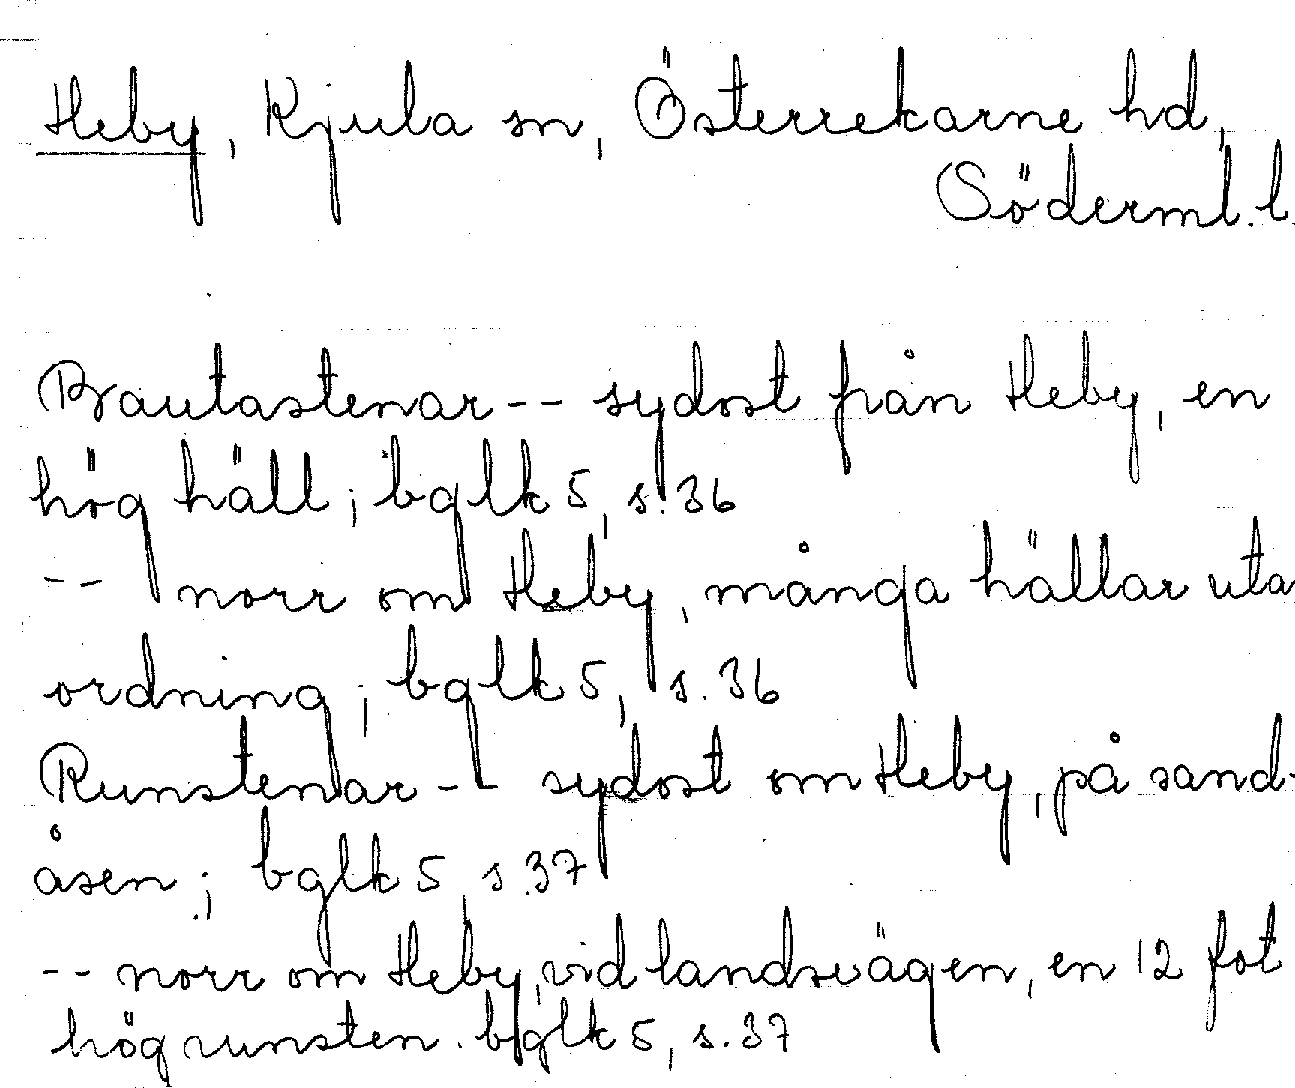 Heby, Kjula sn, Österrekarne hd,
Söderml. l.
Bautastenar -- sydost från Heby, en
hög häll; bglk 5, s. 36
-- norr om Heby, många hällar uta
ordning; bglk 5, s. 36
Runstenar -- sydost om Heby, på sand-
åsen; bglk 5, s. 37
-- norr om Heby, vid landsvägen, en 12 fot
hög runsten. bglk 5, s. 37